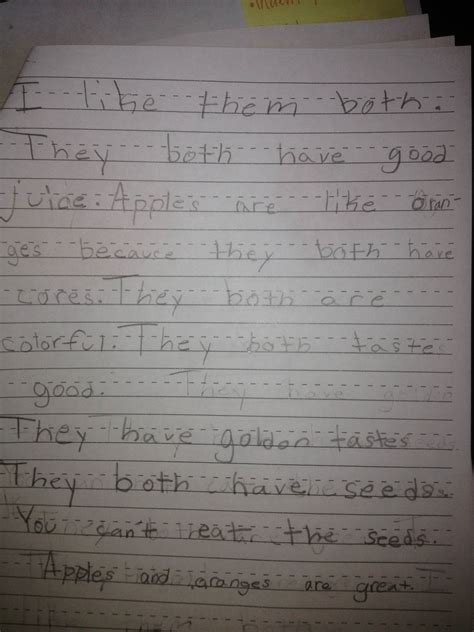 I like them both.
They both have good
juice. Apples are like oran-
ges becauce they both have
cores. They both are
colorful. They both taste
good. They have golden
They have goldon tastes
They both have seeds.
You can't eat the seeds.
Apples and oranges are great.